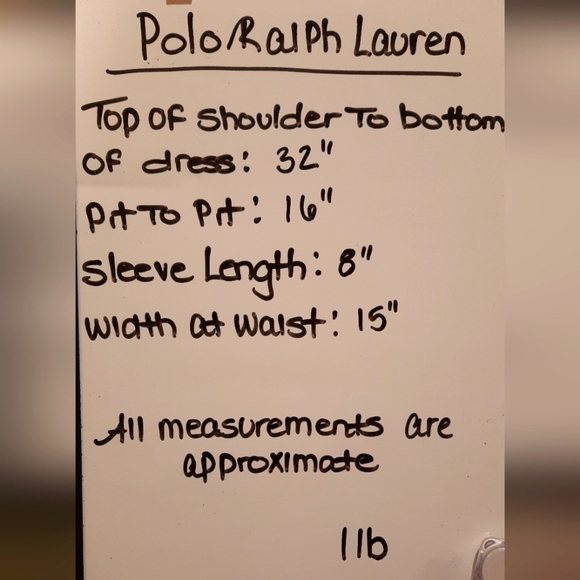 Polo/Ralph Lauren
Top of shoulder To bottom
of dress: 32"
Pit To Pit: 16"
Sleeve Length: 8"
Width at Waist: 15"
All measurements are
approximate
1 lb